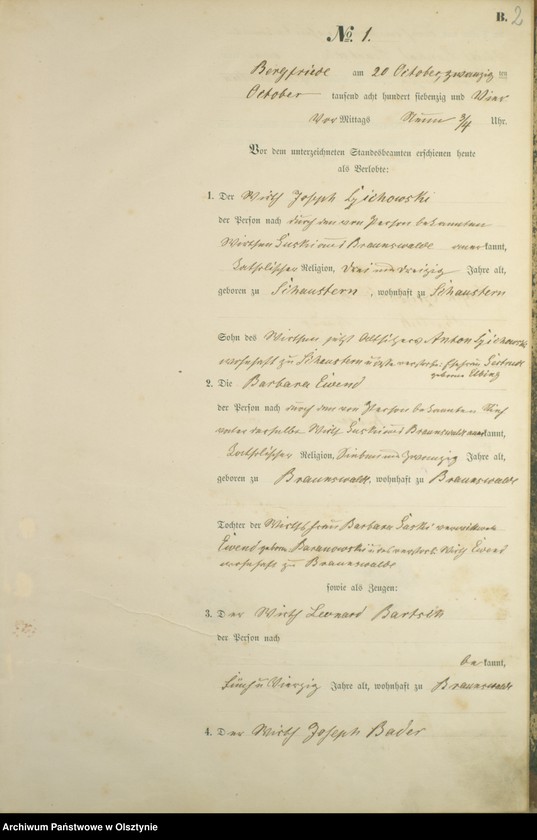 B. 2
No. 1.
Bergfriede am 20 October, zwanzig ten
October tausend acht hundert siebenzig und Vier
Vor Mittags Neun 3/4 Uhr.
Vor dem unterzeichneten Standesbeamten erschienen heute
als Verlobte:
1. Der Wirth Joseph
der Person nach durch den von Person bekannten
Wirthen Braunswalde kannt,
Katholischer Religion, drei und dreizig Jahre alt,
geboren zu Schaustern, wohnhaft zu Schaustern
Sohn des Wirthen jetzt Anton
wohnhaft zu Schaustern
geborne Elbing
2. Die Barbara Ewend
der Person nach durch den von Person bekannten
Wirth Braunswalde kannt,
Katholischer Religion, Sieben und zwanzig Jahre alt,
geboren zu Braunswalde, wohnhaft zu Braunswalde
Tochter der Wirthsfrau Barbara verwittwete
Ewend geborne Baranowski Wirth Ewend
wohnhaft zu Braunswalde
sowie als Zeugen:
3. Der Wirth Leonard Bartsch
der Person nach
be kannt,
Fünf u Vierzig Jahre alt, wohnhaft zu Braunswalde
4. Der Wirth Joseph Bader
Archiwum Państwowe w Olsztynie